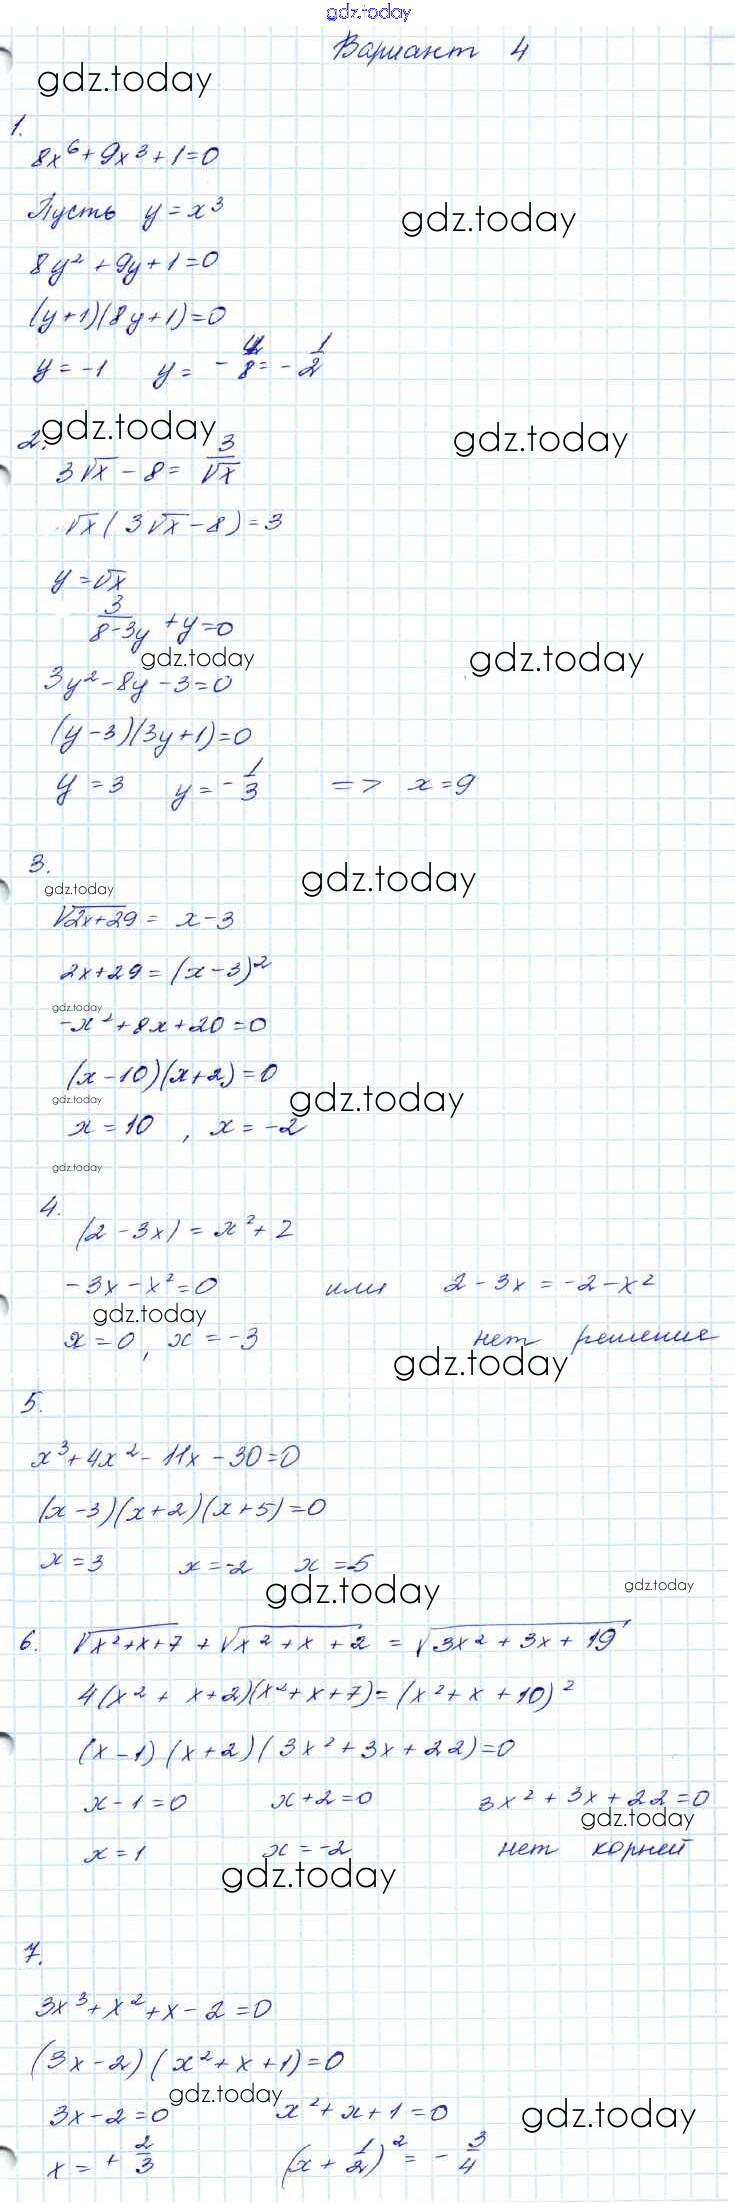 gdz.today
Вариант 4
gdz.today
1.
8x⁶ + 9x³ + 1 = 0
Пусть y = x³
gdz.today
8y² + 9y + 1 = 0
(y+1)(8y+1) = 0
y = -1 y = -4/8 = -1/2
gdz.today
gdz.today
2.
3√x - 8 = 3/√x
√x(3√x - 8) = 3
y = √x
3/(8-3y) + y = 0
gdz.today
gdz.today
3y² - 8y - 3 = 0
(y-3)(3y+1) = 0
y = 3 y = -1/3 => x = 9
3.
gdz.today
gdz.today
√(2x+29) = x-3
2x+29 = (x-3)²
gdz.today
-x² + 8x + 20 = 0
(x-10)(x+2) = 0
gdz.today
gdz.today
x = 10 , x = -2
gdz.today
4.
(2-3x) = x² + 2
-3x - x² = 0 или 2-3x = -2-x²
gdz.today
x = 0, x = -3 нет решение
gdz.today
5.
x³ + 4x² - 11x - 30 = 0
(x-3)(x+2)(x+5) = 0
x = 3 x = -2 x = -5
gdz.today
gdz.today
6. √(x²+x+7) + √(x²+x+2) = √(3x²+3x+19)
4(x²+x+2)(x²+x+7) = (x²+x+10)²
(x-1)(x+2)(3x²+3x+22) = 0
x-1=0 x+2=0 3x²+3x+22=0
gdz.today
x = 1 x = -2 нет корней
gdz.today
7.
3x³ + x² + x - 2 = 0
(3x-2)(x²+x+1) = 0
gdz.today
3x-2=0 x²+x+1=0
gdz.today
x = +2/3 (x+1/2)² = -3/4